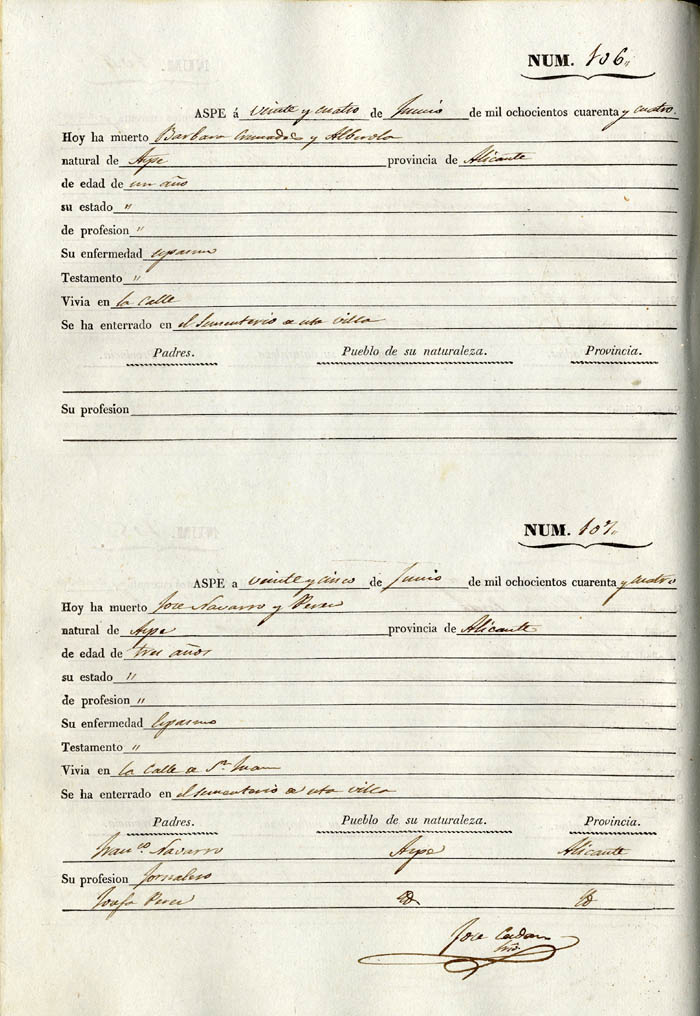 NUM. 106.
ASPE á veinte y cuatro de Junio de mil ochocientos cuarenta y cuatro.
Hoy ha muerto Barbara y Alberola
natural de Aspe provincia de Alicante
de edad de un año
su estado "
de profesion "
Su enfermedad espasmo
Testamento "
Vivia en la Calle
Se ha enterrado en el Sementerio de esta villa
Padres. Pueblo de su naturaleza. Provincia.
Su profesion
NUM. 107.
ASPE a veinte y cinco de Junio de mil ochocientos cuarenta y cuatro
Hoy ha muerto Jose Navarro y
natural de Aspe provincia de Alicante
de edad de tres años
su estado "
de profesion "
Su enfermedad Espasmo
Testamento "
Vivia en la Calle de Sn. Juan
Se ha enterrado en el Sementerio de esta villa
Padres. Pueblo de su naturaleza. Provincia.
Franco. Navarro Aspe Alicante
Su profesion Jornalero
Josefa Id Id
Jose